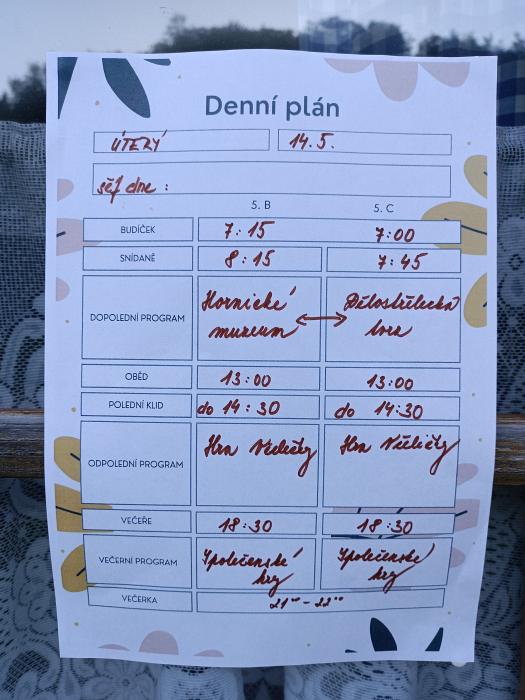 Denní plán
ÚTERÝ 14.5.
šéf dne :
5. B 5. C
BUDÍČEK 7:15 7:00
SNÍDANĚ 8:15 7:45
DOPOLEDNÍ PROGRAM Hornické muzeum ↔ Dělostřelecká tvrz
OBĚD 13:00 13:00
POLEDNÍ KLID do 14:30 do 14:30
ODPOLEDNÍ PROGRAM Hra Včeličky Hra Včeličky
VEČEŘE 18:30 18:30
VEČERNÍ PROGRAM Společenské hry Společenské hry
VEČERKA 21⁰⁰ - 22⁰⁰